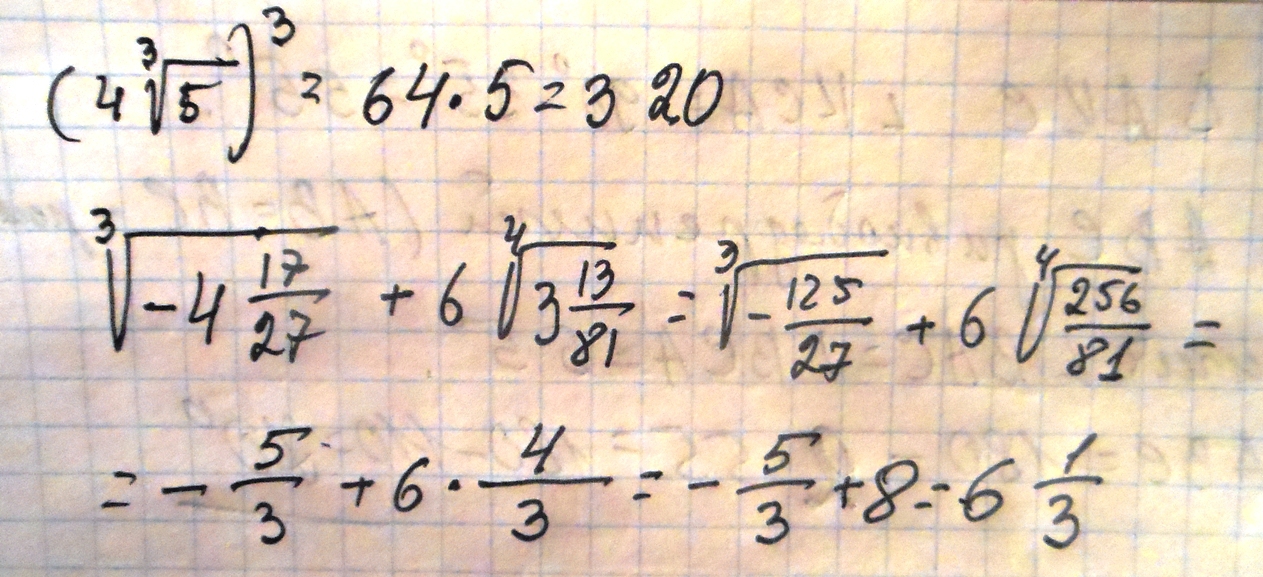 (4∛5)³ = 64·5 = 320
∛(-4 17/27) + 6 ∜(3 13/81) = ∛(-125/27) + 6 ∜(256/81) =
= - 5/3 + 6 · 4/3 = - 5/3 + 8 = 6 1/3